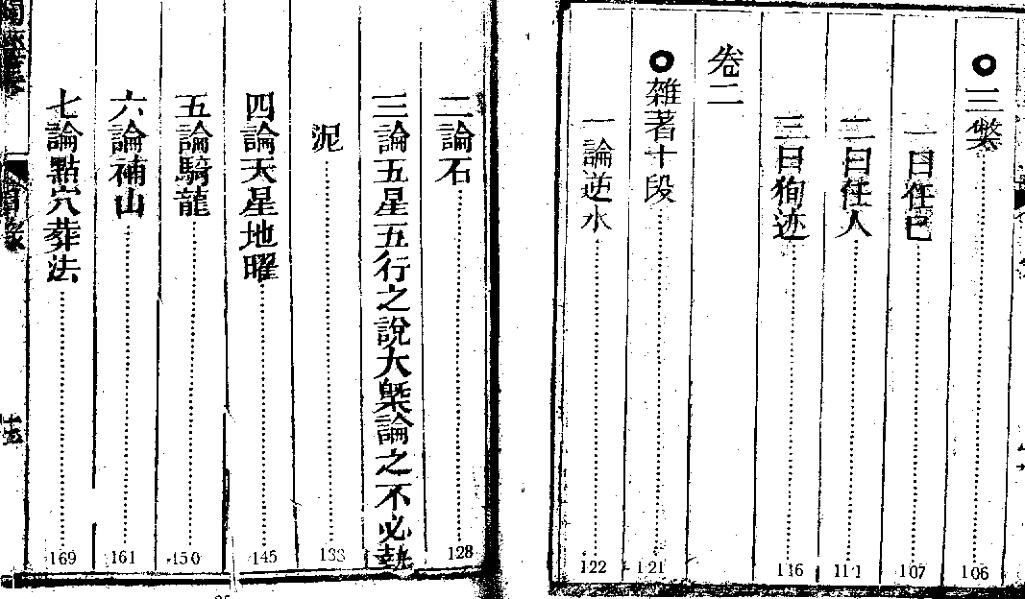 ◎三弊 106
一曰任已 107
二曰任人 111
三曰狥迹 116
卷二
◎雜著十段 121
一論逆水 122
二論石 128
三論五星五行之說大槩論之不必執
泥 133
四論天星地曜 145
五論騎龍 150
六論補山 161
七論點穴葬法 169
目錄